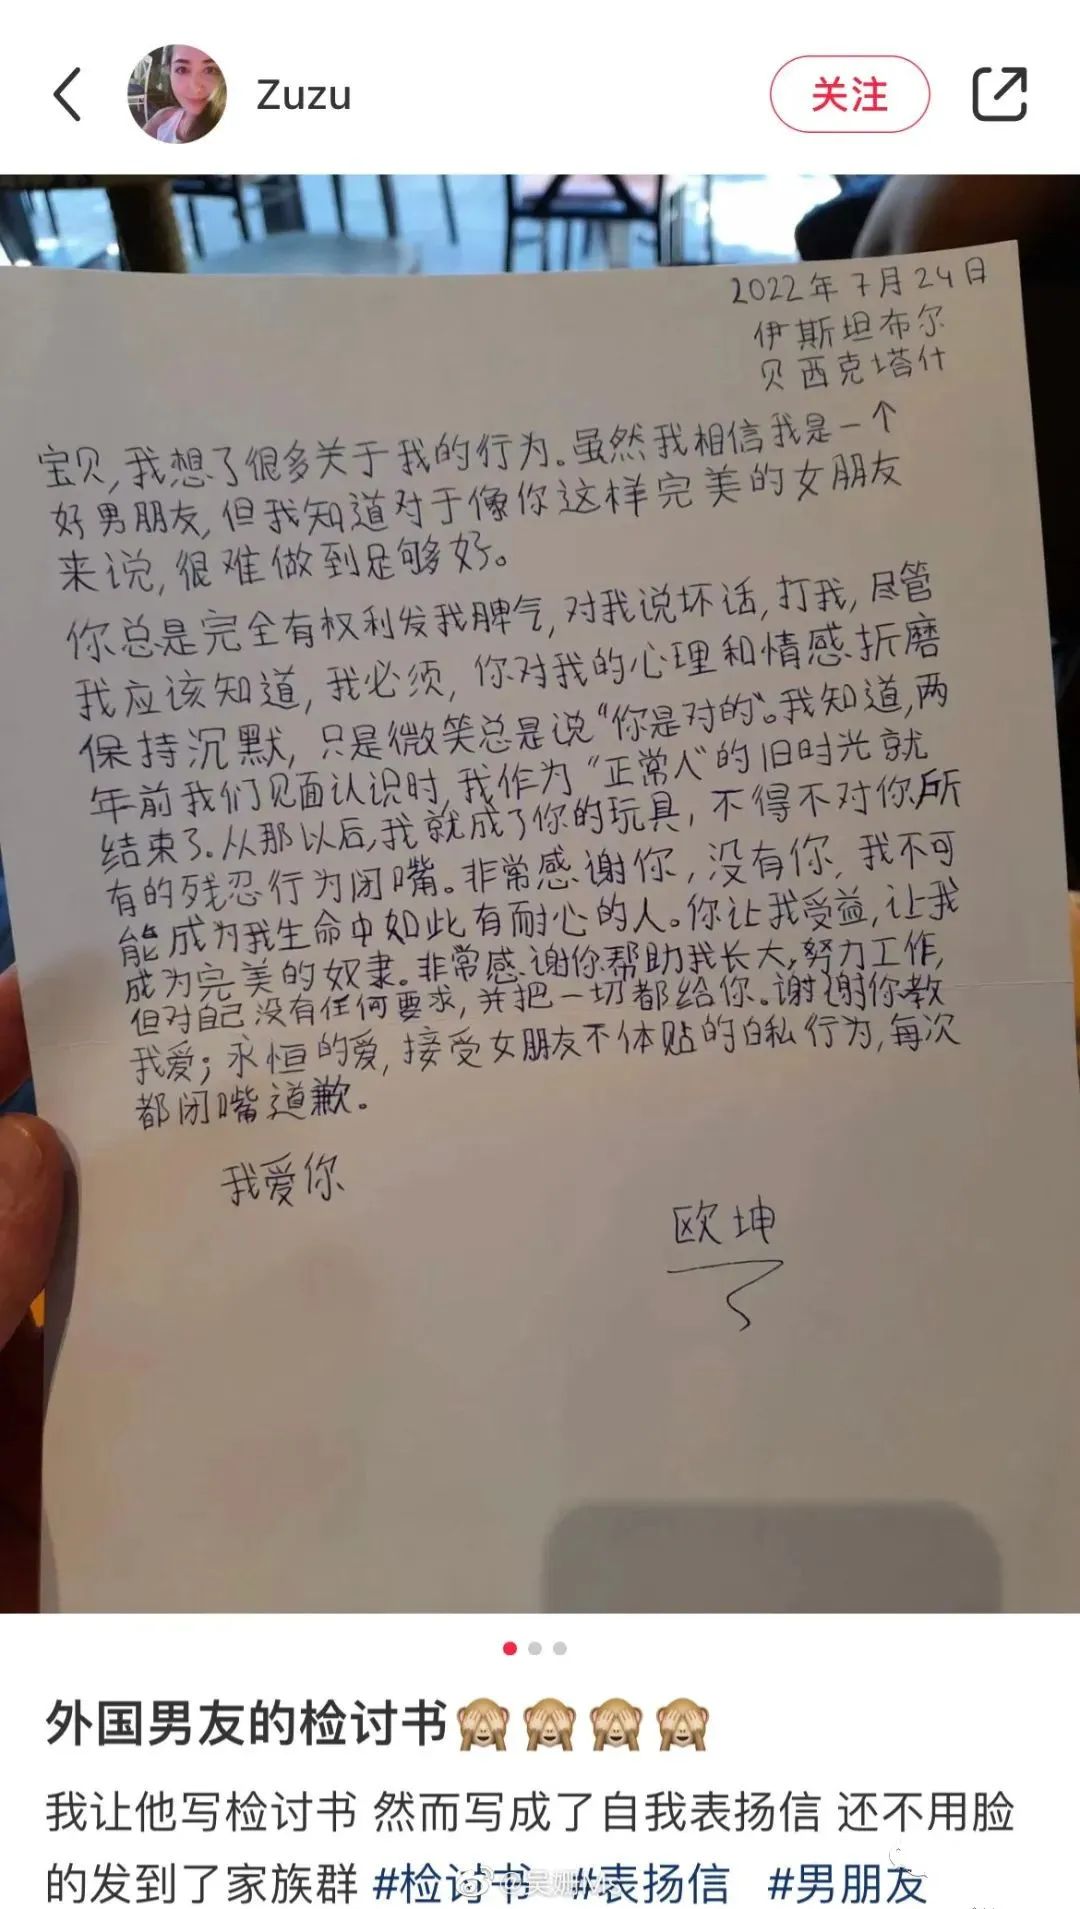 Zuzu
关注
2022年7月24日
伊斯坦布尔
贝西克塔什
宝贝,我想了很多关于我的行为。虽然我相信我是一个
好男朋友,但我知道对于像你这样完美的女朋友
来说,很难做到足够好。
你总是完全有权利发我脾气,对我说坏话,打我,尽管
我应该知道,我必须,你对我的心理和情感折磨
保持沉默,只是微笑总是说“你是对的”。我知道,两
年前我们见面认识时,我作为“正常人”的旧时光就
结束了。从那以后,我就成了你的玩具,不得不对你所
有的残忍行为闭嘴。非常感谢你,没有你,我不可
能成为我生命中如此有耐心的人。你让我受益,让我
成为完美的奴隶。非常感谢你帮助我长大,努力工作,
但对自己没有任何要求,并把一切都给你。谢谢你教
我爱;永恒的爱,接受女朋友不体贴的自私行为,每次
都闭嘴道歉。
我爱你
欧坤
外国男友的检讨书🙈🙈🙈🙈
我让他写检讨书 然而写成了自我表扬信 还不用脸
的发到了家族群 #检讨书 #表扬信 #男朋友